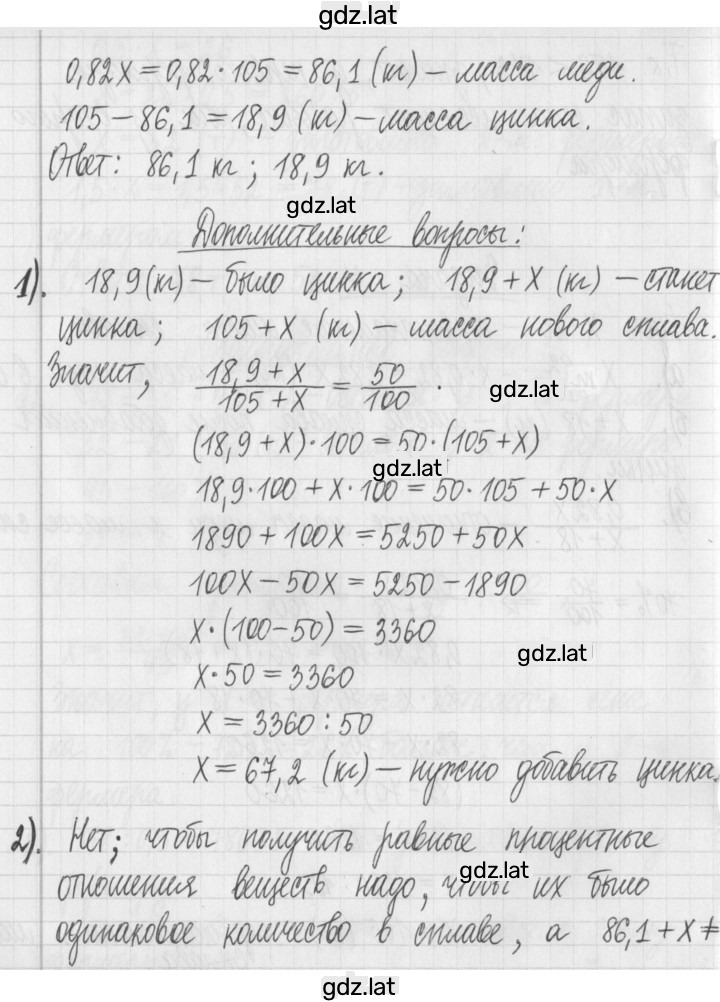 gdz.lat
0,82x = 0,82 · 105 = 86,1 (кг) – масса меди.
105 – 86,1 = 18,9 (кг) – масса цинка.
Ответ: 86,1 кг; 18,9 кг.
gdz.lat
Дополнительные вопросы:
1). 18,9 (кг) – было цинка; 18,9 + x (кг) – станет
цинка; 105 + x (кг) – масса нового сплава.
Значит, (18,9 + x)/(105 + x) = 50/100.
gdz.lat
(18,9 + x) · 100 = 50 · (105 + x)
gdz.lat
18,9 · 100 + x · 100 = 50 · 105 + 50 · x
1890 + 100x = 5250 + 50x
100x – 50x = 5250 – 1890
x · (100 – 50) = 3360
gdz.lat
x · 50 = 3360
x = 3360 : 50
x = 67,2 (кг) – нужно добавить цинка.
2). Нет; чтобы получить равные процентные
gdz.lat
отношения веществ надо, чтобы их было
одинаковое количество в сплаве, а 86,1 + x ≠
gdz.lat